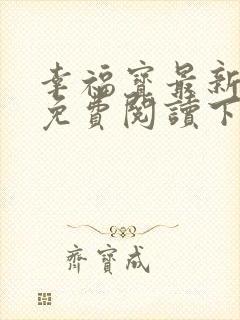 幸福寶最新
免費閱讀下
齊寶成